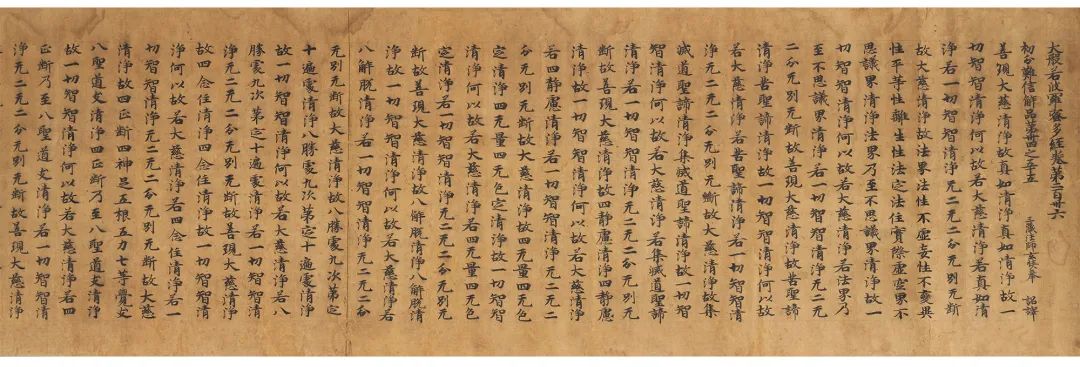 大般若波羅蜜多經卷第二百卅六
初分難信解品第卅四之五十五 三藏法師玄奘奉 詔譯
善現大慈清淨故真如清淨真如清淨故一
切智智清淨何以故若大慈清淨若真如清
淨若一切智智清淨无二无二分无別无斷
故大慈清淨故法界法性不虛妄性不變異
性平等性離生性法定法住實際虛空界不
思議界清淨法界乃至不思議界清淨故一
切智智清淨何以故若大慈清淨若法界乃
至不思議界清淨若一切智智清淨无二无
二分无別无斷故善現大慈清淨故苦聖諦
清淨苦聖諦清淨故一切智智清淨何以故
若大慈清淨若苦聖諦清淨若一切智智清
淨无二无二分无別无斷故大慈清淨故集
滅道聖諦清淨集滅道聖諦清淨故一切智
智清淨何以故若大慈清淨若集滅道聖諦
清淨若一切智智清淨无二无二分无別无
斷故善現大慈清淨故四靜慮清淨四靜慮
清淨故一切智智清淨何以故若大慈清淨
若四靜慮清淨若一切智智清淨无二无二
分无別无斷故大慈清淨故四无量四无色
定清淨四无量四无色定清淨故一切智智
清淨何以故若大慈清淨若四无量四无色
定清淨若一切智智清淨无二无二分无別无
斷故善現大慈清淨故八解脫清淨八解脫清
淨故一切智智清淨何以故若大慈清淨若
八解脫清淨若一切智智清淨无二无二分
无別无斷故大慈清淨故八勝處九次第定
十遍處清淨八勝處九次第定十遍處清淨
故一切智智清淨何以故若大慈清淨若八
勝處九次第定十遍處清淨若一切智智清
淨无二无二分无別无斷故善現大慈清淨
故四念住清淨四念住清淨故一切智智清
淨何以故若大慈清淨若四念住清淨若一
切智智清淨无二无二分无別无斷故大慈
清淨故四正斷四神足五根五力七等覺支
八聖道支清淨四正斷乃至八聖道支清淨
故一切智智清淨何以故若大慈清淨若四
正斷乃至八聖道支清淨若一切智智清
淨无二无二分无別无斷故善現大慈清淨